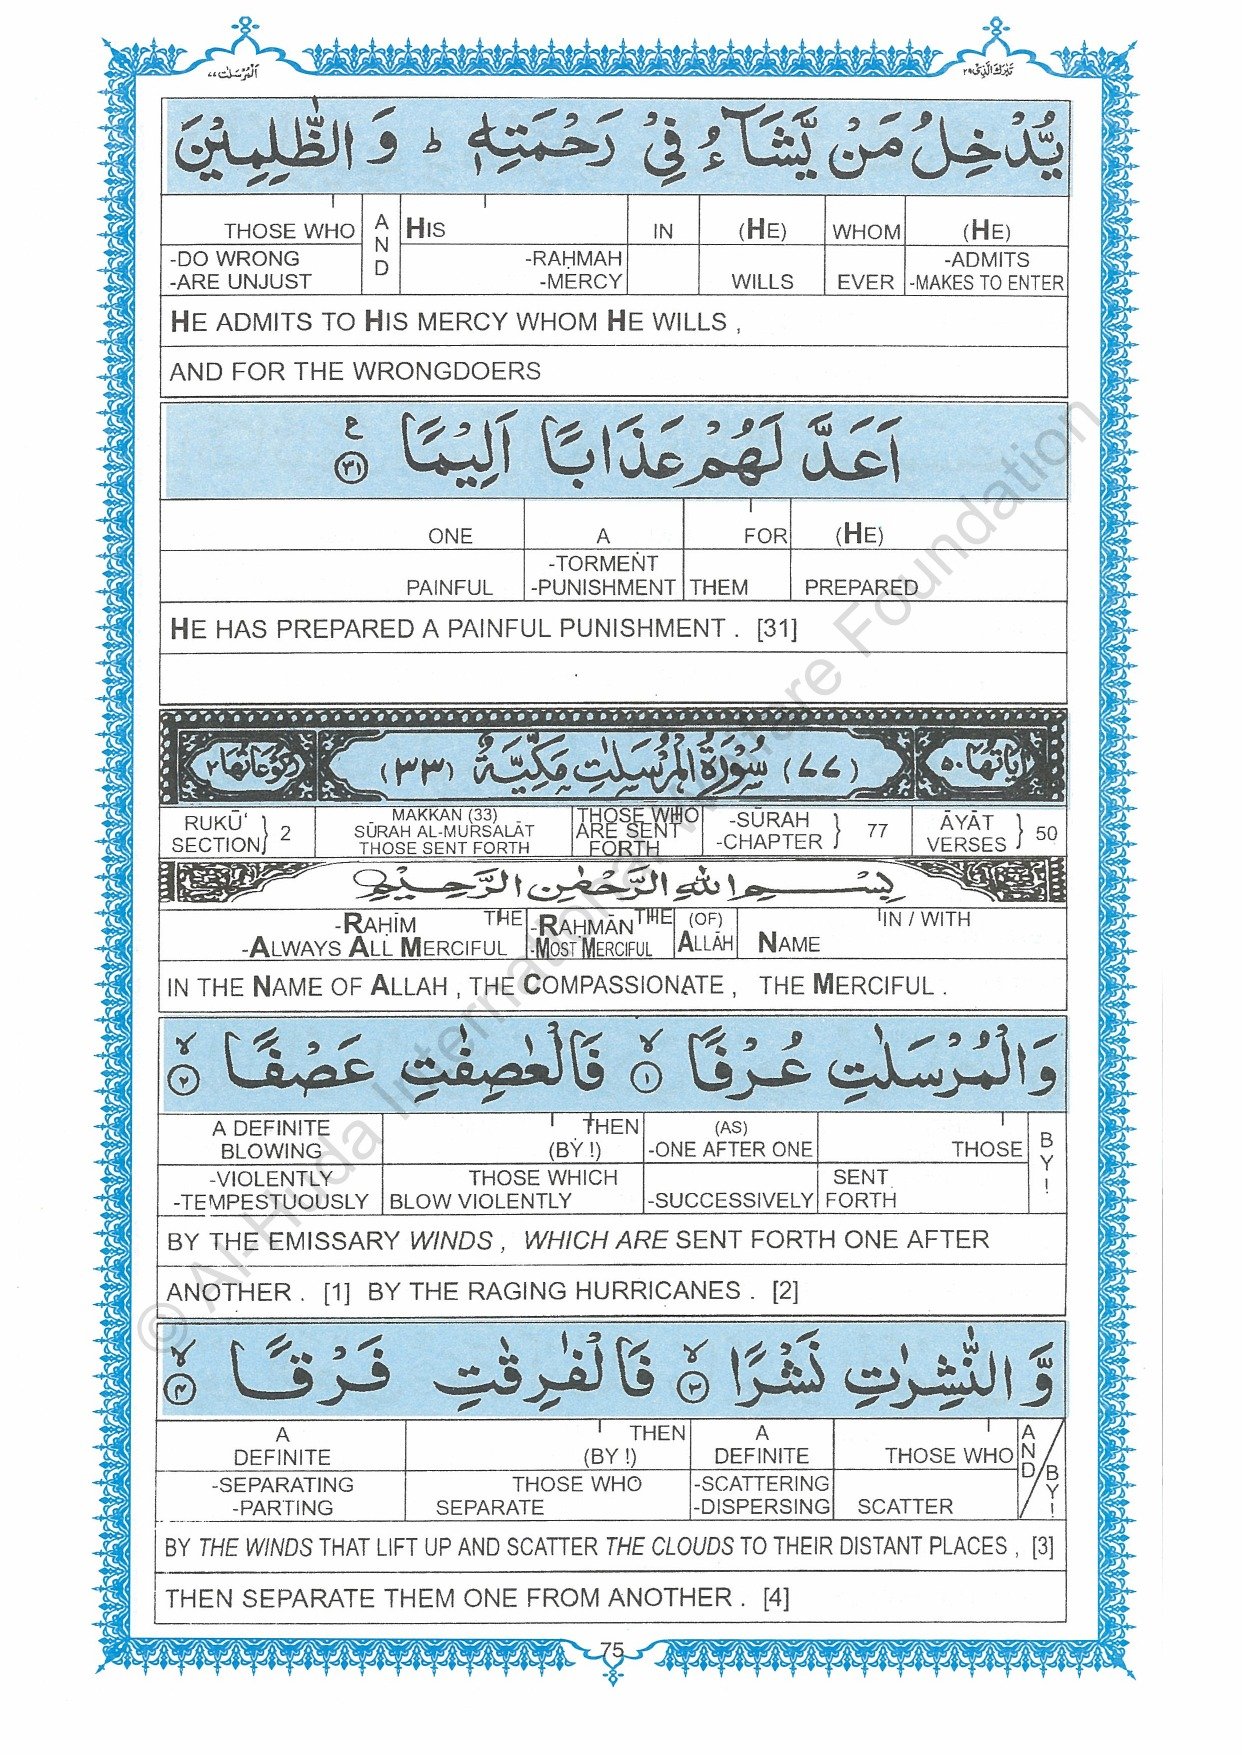 المرسلت ٧٧
تبرك الذي ٢٩
يُّدْخِلُ مَنْ يَّشَآءُ فِيْ رَحْمَتِهٖ ؕ وَ الظّٰلِمِيْنَ
THOSE WHO AND HIS IN (HE) WHOM (HE)
-DO WRONG -RAḤMAH -ADMITS
-ARE UNJUST -MERCY WILLS EVER -MAKES TO ENTER
HE ADMITS TO HIS MERCY WHOM HE WILLS ,
AND FOR THE WRONGDOERS
اَعَدَّ لَهُمْ عَذَابًا اَلِيْمًا ﴿٣١﴾ ع
ONE A FOR (HE)
-TORMENT
PAINFUL -PUNISHMENT THEM PREPARED
HE HAS PREPARED A PAINFUL PUNISHMENT . [31]
اٰيَاتُهَا ٥٠ (٧٧) سُوْرَةُ الْمُرْسَلٰتِ مَكِّيَّةٌ (٣٣) رُكُوْعَاتُهَا ٢
RUKŪ‘ SECTION } 2 MAKKAN (33) SŪRAH AL-MURSALĀT THOSE SENT FORTH THOSE WHO ARE SENT FORTH -SŪRAH -CHAPTER } 77 ĀYĀT VERSES } 50
بِسْمِ اللهِ الرَّحْمٰنِ الرَّحِيْمِ
-RAḤĪM THE -RAḤMĀN THE (OF) IN / WITH
-ALWAYS ALL MERCIFUL -MOST MERCIFUL ALLĀH NAME
IN THE NAME OF ALLAH , THE COMPASSIONATE , THE MERCIFUL .
وَالْمُرْسَلٰتِ عُرْفًا ﴿١﴾ۙ فَالْعٰصِفٰتِ عَصْفًا ﴿٢﴾ۙ
A DEFINITE THEN (AS) BY !
BLOWING (BY !) -ONE AFTER ONE THOSE
-VIOLENTLY THOSE WHICH SENT
-TEMPESTUOUSLY BLOW VIOLENTLY -SUCCESSIVELY FORTH
BY THE EMISSARY WINDS , WHICH ARE SENT FORTH ONE AFTER
ANOTHER . [1] BY THE RAGING HURRICANES . [2]
وَّ النّٰشِرٰتِ نَشْرًا ﴿٣﴾ۙ فَالْفٰرِقٰتِ فَرْقًا ﴿٤﴾ۙ
A THEN A AND / BY !
DEFINITE (BY !) DEFINITE THOSE WHO
-SEPARATING THOSE WHO -SCATTERING
-PARTING SEPARATE -DISPERSING SCATTER
BY THE WINDS THAT LIFT UP AND SCATTER THE CLOUDS TO THEIR DISTANT PLACES , [3]
THEN SEPARATE THEM ONE FROM ANOTHER . [4]
75
© Al-Huda International Welfare Foundation